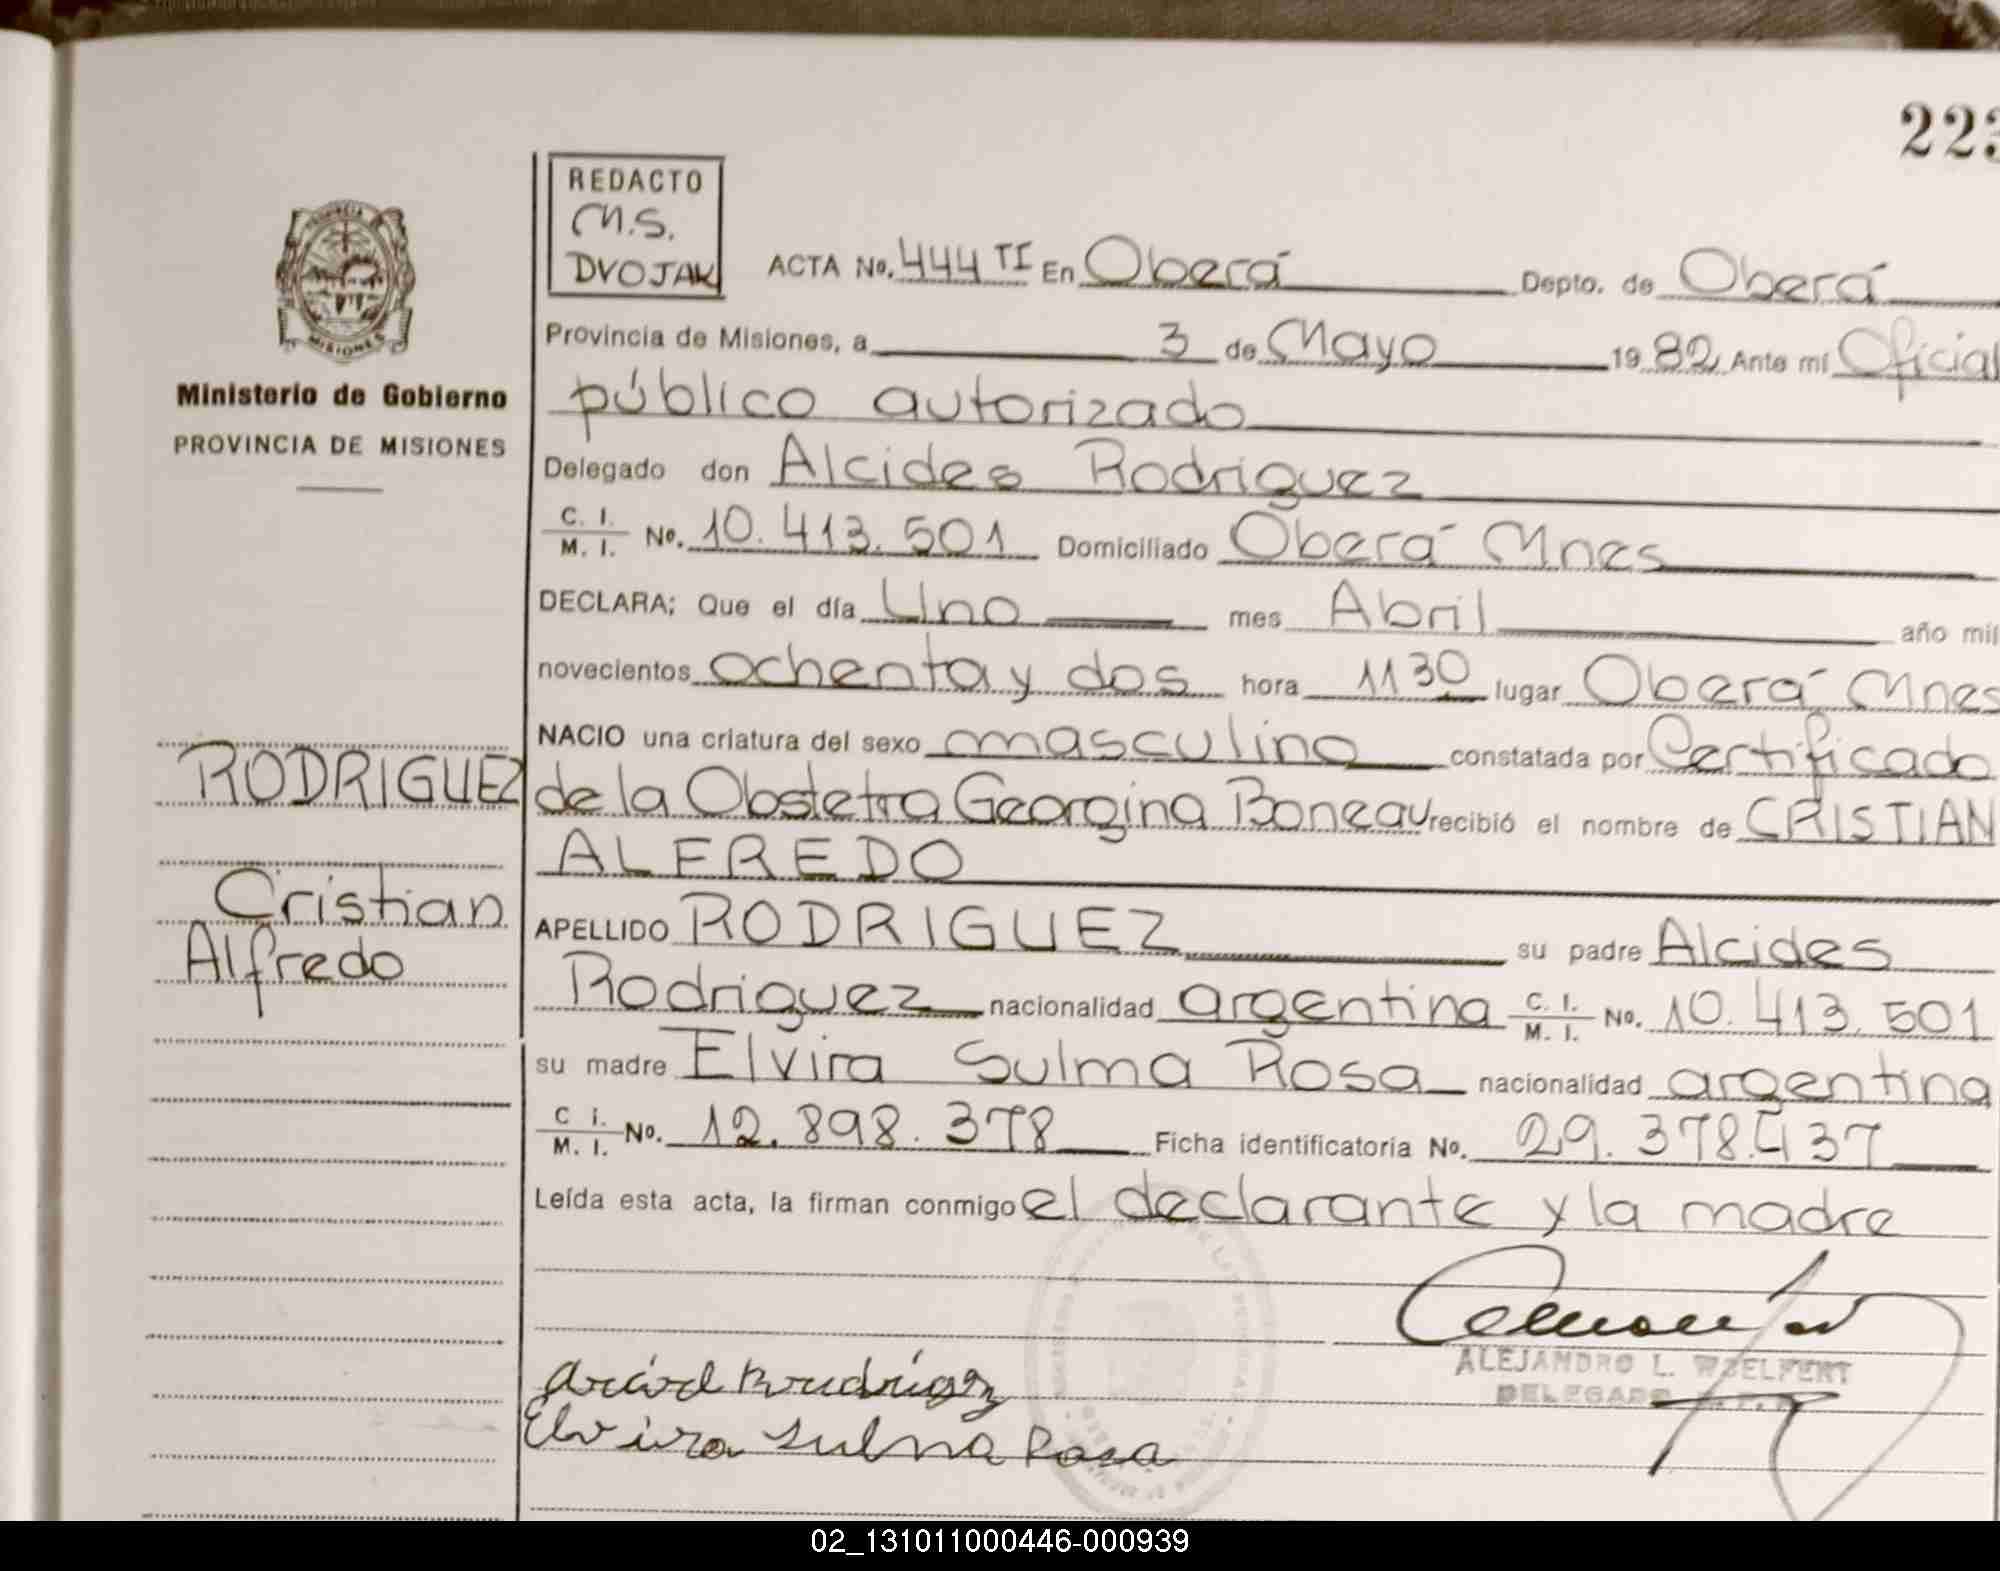 223
REDACTO
M.S.
DVOJAK
ACTA No. 444 TI En Oberá Depto. de Oberá
Provincia de Misiones, a 3 de Mayo 1982 Ante mí Oficial
público autorizado
Delegado don Alcides Rodriguez
C. I. / M. I. No. 10.413.501 Domiciliado Oberá Mnes
DECLARA; Que el día Uno mes Abril año mil
novecientos ochenta y dos hora 11 30 lugar Oberá Mnes
NACIO una criatura del sexo masculino constatada por Certificado
de la Obstetra Georgina Boneau recibió el nombre de CRISTIAN
ALFREDO
APELLIDO RODRIGUEZ su padre Alcides
Rodriguez nacionalidad argentina C. I. / M. I. No. 10.413.501
su madre Elvira Sulma Rosa nacionalidad argentina
C I. / M. I. No. 12.898.378 Ficha identificatoria No. 29.378.437
Leída esta acta, la firman conmigo el declarante y la madre
Elvira Sulma Rosa
ALEJANDRO L.
DELEGADO
MISIONES
Ministerio de Gobierno
PROVINCIA DE MISIONES
RODRIGUEZ
Cristian
Alfredo
02_131011000446-000939